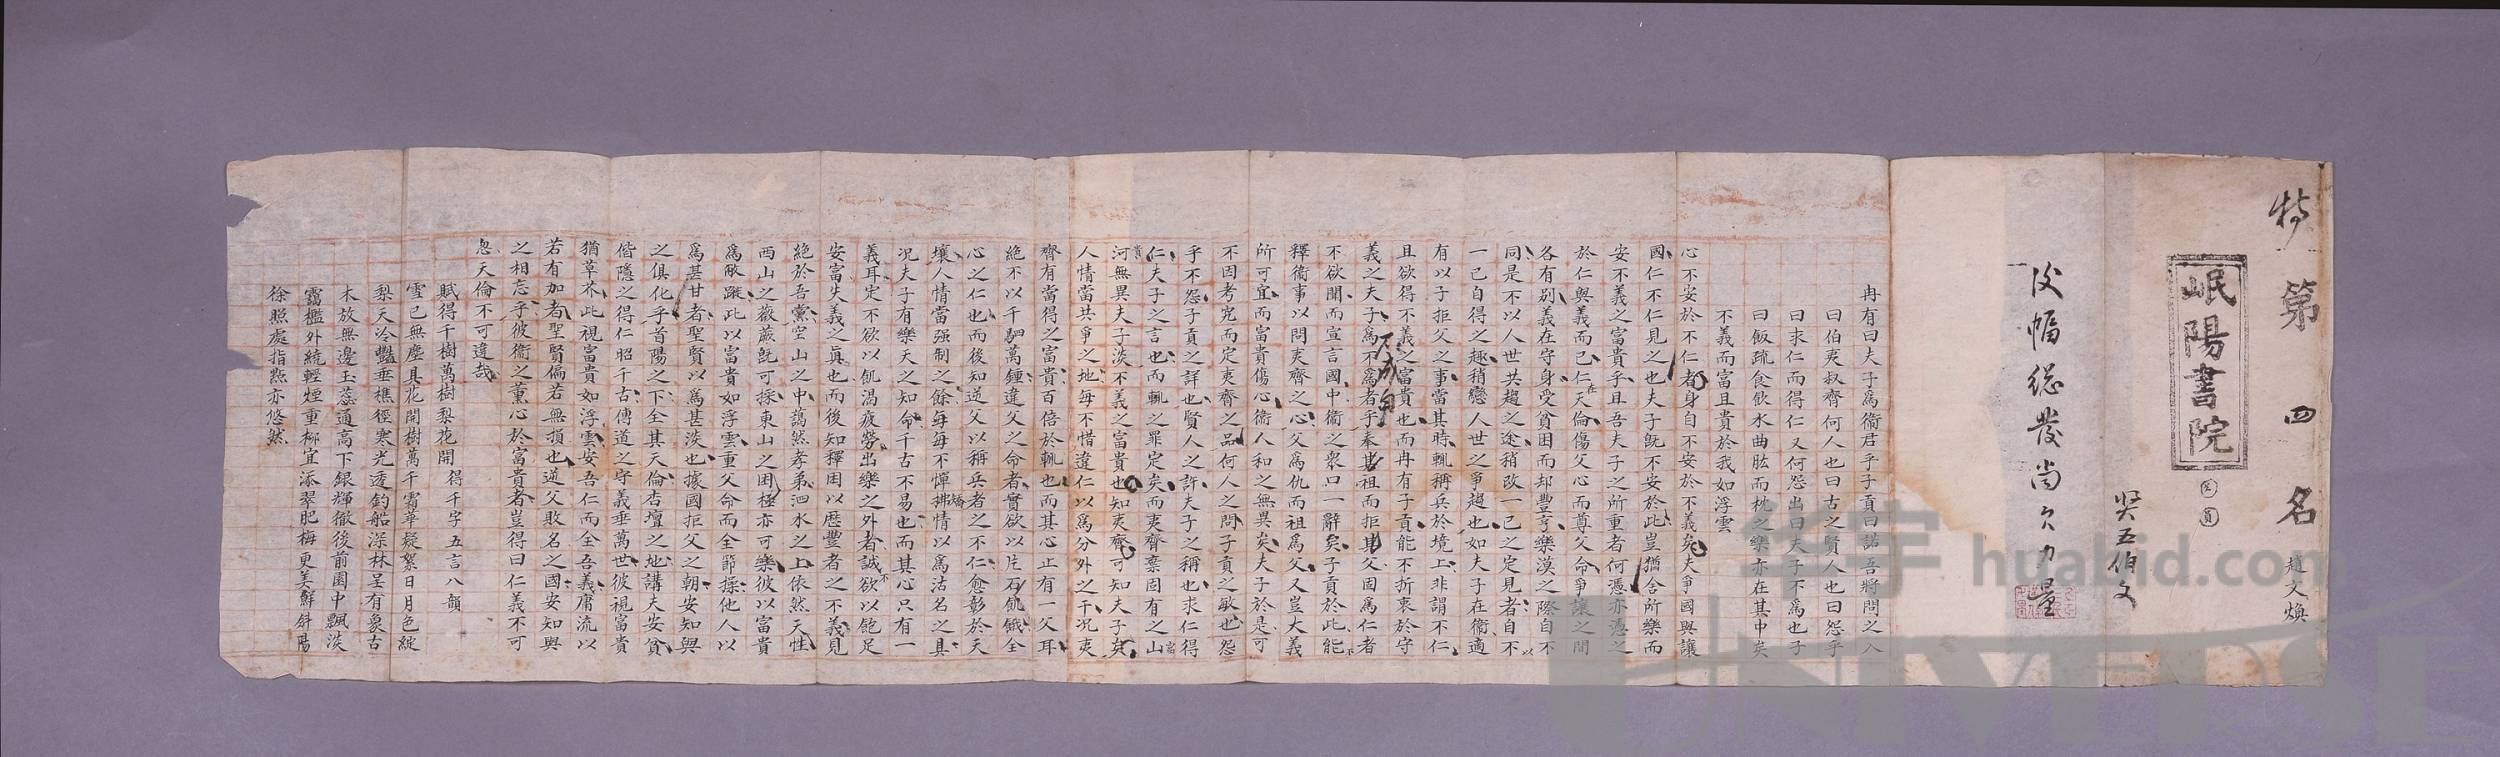 特第四名
趙文煥
岷陽書院
生員
奨五伯文
後幅總發尚欠力量
冉有曰夫子為衞君乎子貢曰諾吾將問之入
曰伯夷叔齊何人也曰古之賢人也曰怨乎
曰求仁而得仁又何怨出曰夫子不為也子
曰飯疏食飲水曲肱而枕之樂亦在其中矣
不義而富且貴於我如浮雲
心不安於不仁者身自不安於不義矣夫爭國與讓
國仁不仁見之也夫子既不安於此豈猶舍所樂而
安不義之富貴乎且吾夫子之所重者何憑亦憑之
於仁與義而已仁在天倫傷父心而尊父命爭讓之間
各有別義在守身受貧困而却豐亨樂漠之際自不
同是不以人世共趨之途稍改一己之定見者自不以
一己自得之趣稍戀人世之爭趨也如夫子在衞適
有以子拒父之事當其時輒稱兵於境上非謂不仁
且欲得不義之富貴也而冉有子貢能不折衷於守
義之夫子為不為者乎奉其祖而拒其父固為仁者
不成句
不欲聞而宣言國中衞之衆口一辭矣子貢於此能不
釋衞事以問夷齊之心父為仇而祖為父又豈大義
所可宜而富貴傷心衞人和之無異矣夫子於是可
不因考究而定夷齊之品何人之問子貢之敏也怨
乎不怨子貢之詳也賢人之許夫子之稱也求仁得
仁夫子之言也而輒之罪定矣而夷齊棄固有之山
河無異夫子淡不義之富貴也知夷齊可知夫子矣
人情當共爭之地每不惜違仁以為分外之干況夷
齊有當得之富貴百倍於輒也而其心止有一父耳
絕不以千駟萬鍾違父之命者實欲以片石飢餓全
心之仁也而後知逆父以稱兵者之不仁愈彰於天
壤人情當强制之餘每每不憚拂情以為沽名之具
況夫子有樂天之知命千古不易也而其心只有一
義耳定不欲以飢渴疲勞出樂之外者誠不欲以飽足
安富失義之真也而後知釋困以歷豐者之不義見
絕於吾黨空山之中藹然孝弟泗水之上依然天性
西山之薇蕨既可採東山之困極亦可樂彼以富貴
為敝蹝此以富貴如浮雲重父命而全節操他人以
為甚甘者聖賢以為甚淡也據國拒父之朝安知與
之俱化乎首陽之下全其天倫杏壇之地講夫安貧
偕隱之得仁昭千古傳道之守義垂萬世彼視富貴
猶草芥此視富貴如浮雲安吾仁而全吾義庸流以
若有加者聖賢偏若無損也逆父敗名之國安知與
之相忘乎彼衞之薰心於富貴者豈得曰仁義不可
忽天倫不可違哉
賦得千樹萬樹梨花開 得千字五言八韻
雪已無塵具花開樹萬千霜華凝絮日月色綻
梨天冷豔垂樵徑寒光透釣船深林呈有象古
木放無邊玉蕊通高下銀輝徹後前園中飄淡
靄檻外繞輕煙重柳宜添翠肥梅更美鮮斜陽
徐照處指點亦悠然
华宇 huabid.com
UNIVERSE